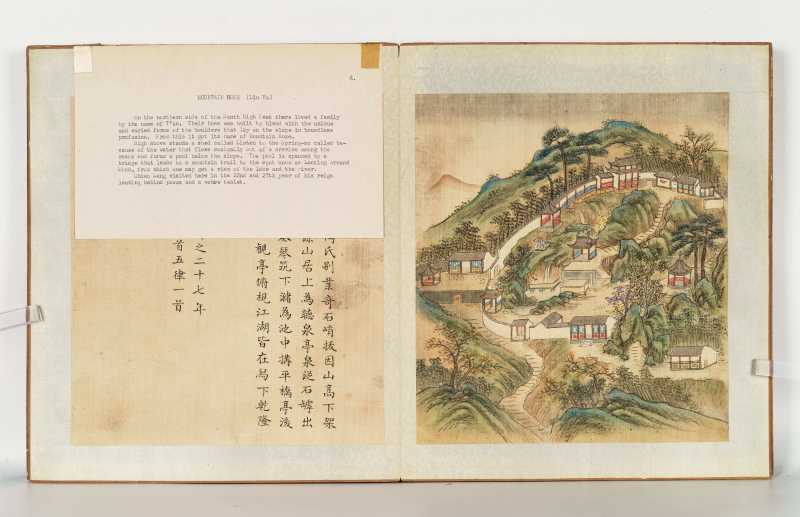 4.
MOUNTAIN HOME
On the northern side of the South High Peak there lived a family
by the name of Their home was built to blend with the unique
and varied forms of the boulders that lay on the slope in boundless
profusion. From this it got its name of Mountain Home.
High above stands a shed called Listen to the Spring-so called be-
cause of the water that flows musically out of a crevice among the
rocks and forms a pool below the slope. The pool is spanned by a
bridge that leads to a mountain trail to the spot known as Leaning Around
Wind, from which one may get a view of the lake and the river.
Chien Lung visited here in the 22nd and 27th year of his reign
leaving behind poems and a tablet.
氏别業奇石峭拔因山高下架
山居上為聽泉亭泉從石罅出
琴筑下瀦為池中搆平橋亭後
觀亭俯視江湖皆在舄下乾隆
之二十七年
首五律一首